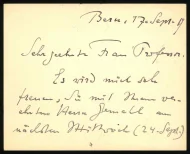 Bern, 17. Sept. 19
Sehr geehrte Frau Professor.
Es wird mich sehr
freuen, Sie mit Ihrem ver-
ehrten Herrn Gemahl am
nächsten Mittwoch (24. Sept.)